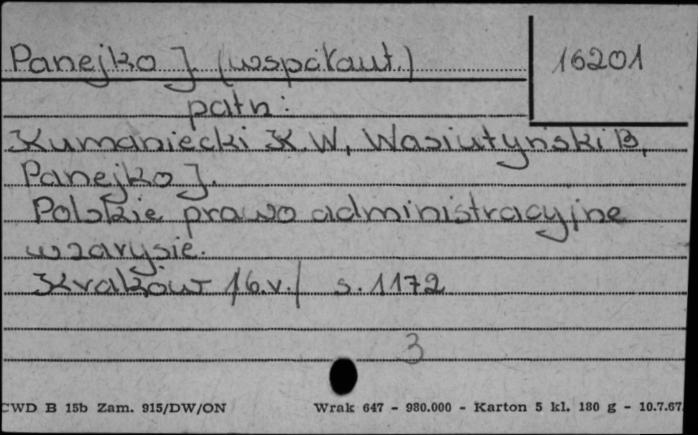 Panejko J. (współaut.)
16201
patrz:
Kumaniecki K.W, Wasiutyński B,
Panejko J.
Polskie prawo administracyjne
w zarysie.
Kraków /b.r./ s. 1172
3
CWD B 15b Zam. 915/DW/ON Wrak 647 - 980.000 - Karton 5 kl. 180 g - 10.7.67